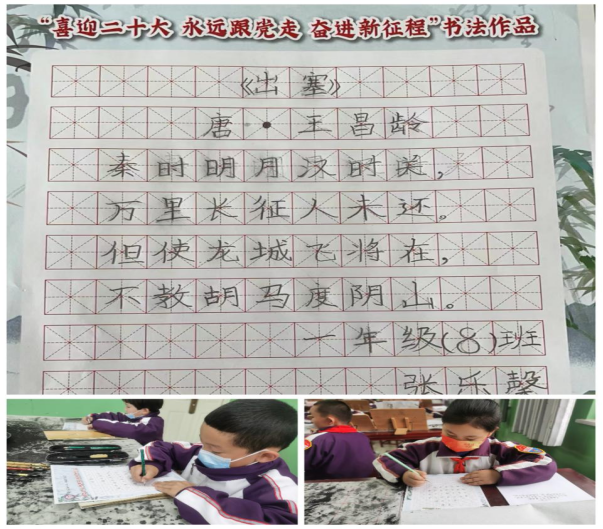 “喜迎二十大 永远跟党走 奋进新征程”书法作品
《出塞》
唐·王昌龄
秦时明月汉时关，
万里长征人未还。
但使龙城飞将在，
不教胡马度阴山。
一年级(8)班
张乐馨